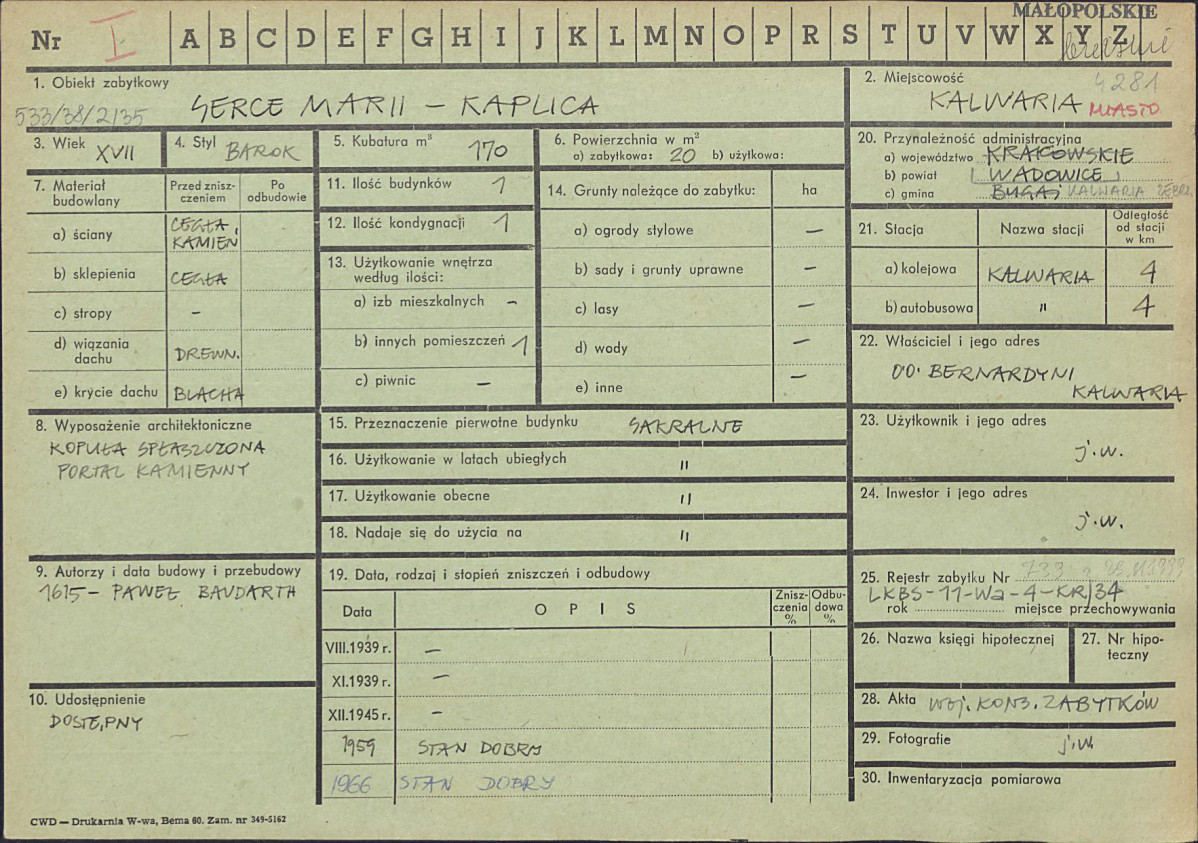 MAŁOPOLSKIE
Nr I A B C D E F G H I J K L M N O P R S T U V W X Y Z
1. Obiekt zabytkowy
533/38/2135 SERCE MARII – KAPLICA
2. Miejscowość 4281
KALWARIA MIASTO
3. Wiek XVII
4. Styl BAROK
5. Kubatura m³ 170
6. Powierzchnia w m²
a) zabytkowa: 20 b) użytkowa:
7. Materiał budowlany
Przed zniszczeniem
Po odbudowie
a) ściany CEGŁA, KAMIEŃ
b) sklepienia CEGŁA
c) stropy –
d) wiązania dachu DREWN.
e) krycie dachu BLACHA
8. Wyposażenie architektoniczne
KOPUŁA SPŁASZCZONA
PORTAL KAMIENNY
9. Autorzy i data budowy i przebudowy
1615 – PAWEŁ BAUDARTH
10. Udostępnienie
DOSTĘPNY
11. Ilość budynków 1
12. Ilość kondygnacji 1
13. Użytkowanie wnętrza
według ilości:
a) izb mieszkalnych –
b) innych pomieszczeń 1
c) piwnic –
14. Grunty należące do zabytku: ha
a) ogrody stylowe –
b) sady i grunty uprawne –
c) lasy –
d) wody –
e) inne –
15. Przeznaczenie pierwotne budynku SAKRALNE
16. Użytkowanie w latach ubiegłych "
17. Użytkowanie obecne "
18. Nadaje się do użycia na "
19. Data, rodzaj i stopień zniszczeń i odbudowy
Data O P I S Zniszczenia % Odbudowa %
VIII.1939 r. –
XI.1939 r. –
XII.1945 r. –
1959 STAN DOBRY
1966 STAN DOBRY
20. Przynależność administracyjna
a) województwo KRAKOWSKIE
b) powiat WADOWICE
c) gmina BUGAJ KALWARIA ZEBRZ.
21. Stacja Nazwa stacji Odległość od stacji w km
a) kolejowa KALWARIA 4
b) autobusowa " 4
22. Właściciel i jego adres
OO. BERNARDYNI
KALWARIA
23. Użytkownik i jego adres
j.w.
24. Inwestor i jego adres
j.w.
25. Rejestr zabytku Nr
LKBS-11-Wa-4-KR/34
rok miejsce przechowywania
26. Nazwa księgi hipotecznej
27. Nr hipoteczny
28. Akta WOJ. KONS. ZABYTKÓW
29. Fotografie j.w.
30. Inwentaryzacja pomiarowa
CWD — Drukarnia W-wa, Bema 60. Zam. nr 349-5162